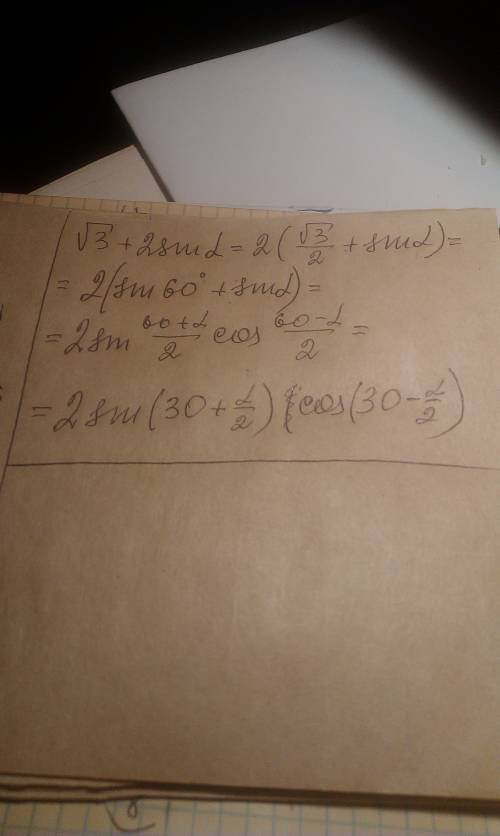 √3 + 2sin α = 2(√3/2 + sin α) =
= 2(sin 60° + sin α) =
= 2 sin (60+α)/2 cos (60-α)/2 =
= 2 sin (30 + α/2) cos(30 - α/2)